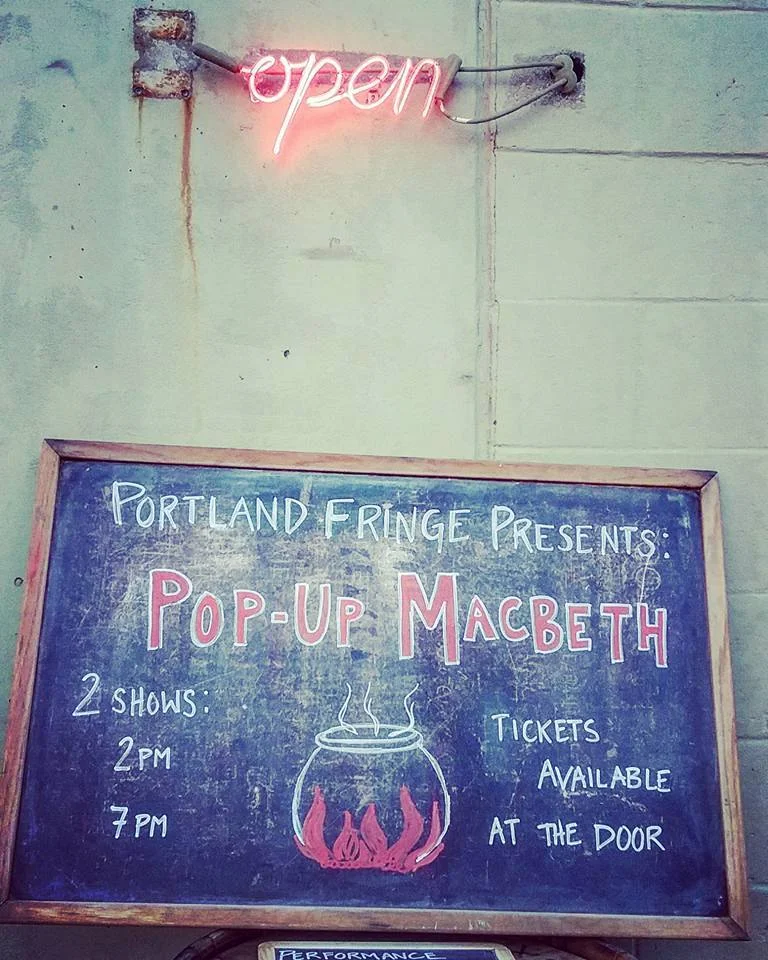 open
PORTLAND FRINGE PRESENTS:
POP-UP MACBETH
2 SHOWS:
2PM
7PM
TICKETS
AVAILABLE
AT THE DOOR
PERFORMANCE